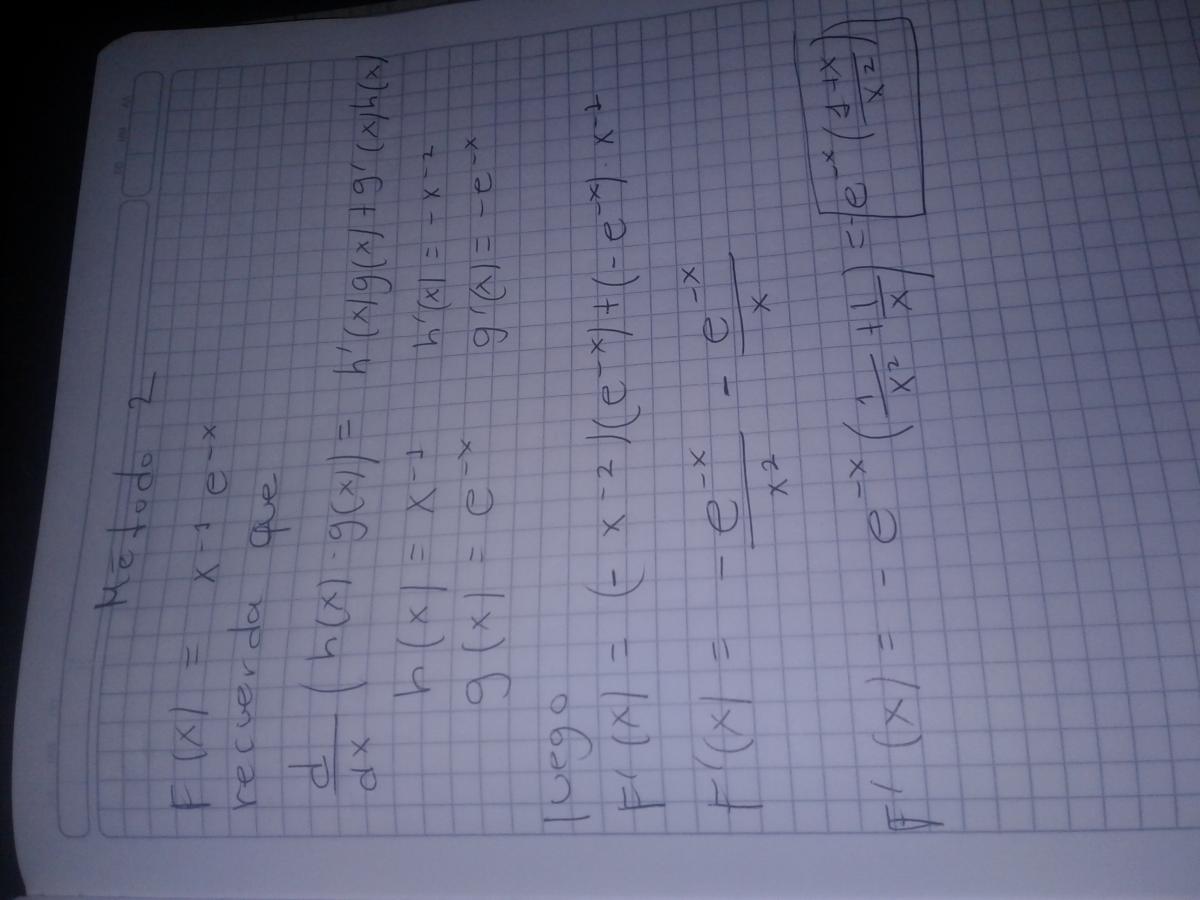 Método 2
F(x) = x^-1 e^-x
recuerda que
d/dx (h(x)·g(x)) = h'(x)g(x)+g'(x)h(x)
h(x) = x^-1 h'(x) = -x^-2
g(x) = e^-x g'(x) = -e^-x
luego
F'(x) = (-x^-2)(e^-x)+(-e^-x)·x^-1
F'(x) = -e^-x/x^2 - e^-x/x
F'(x) = -e^-x (1/x^2 + 1/x) = -e^-x (1+x/x^2)